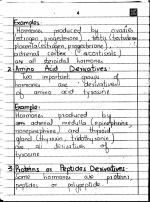 4
Examples:
Hormones produced by ovaries
(estrogen, progesterone), testis (testosterone)
placenta (estrogen, progesterone)
adrenal cortex (corticosol)
are all steroidal hormone.
2. Amino Acid Derivatives:
Two important groups of
hormones are derivatives
of amino acid tyrosine
Example:
Hormones produced by
adrenal medulla (epinephrine,
norepinephrine) and thyroid
gland (thyroxin, triiodothyronine)
are all derivatives of
tyrosine
3. Proteins or Peptides Derivatives:
Some hormones are proteins,
peptides or polypeptide